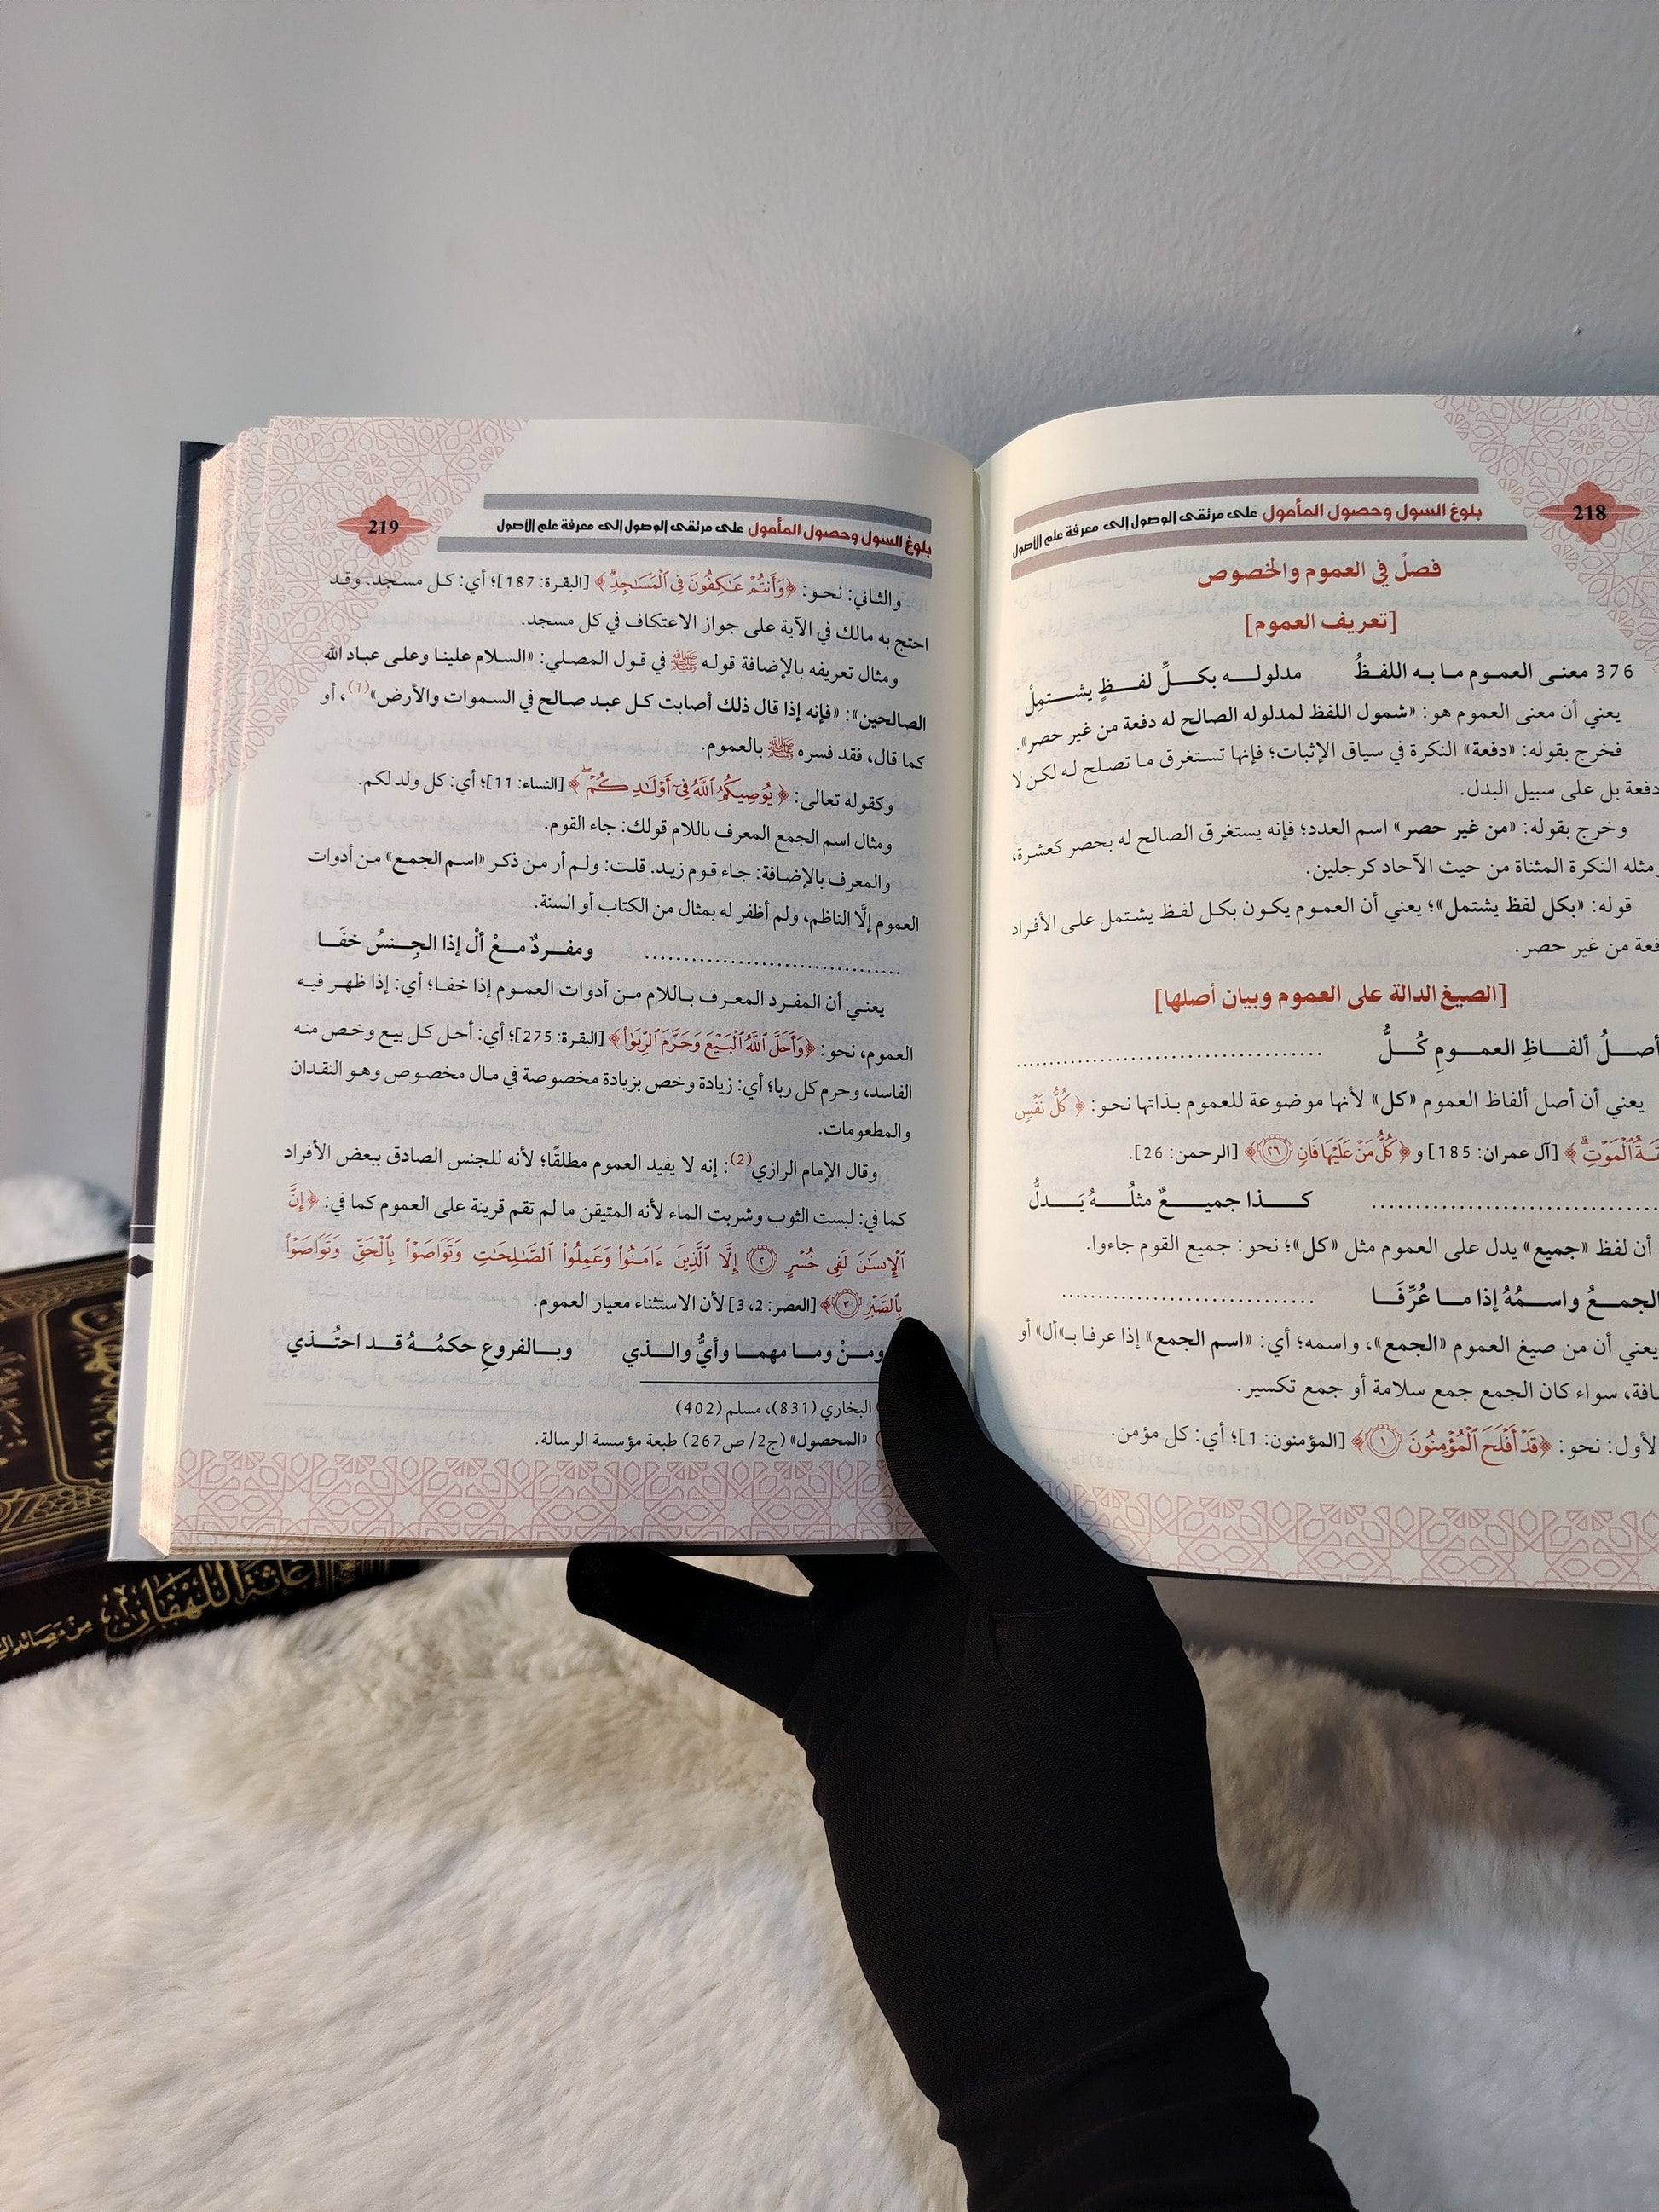 218
بلوغ السول وحصول المأمول على مرتقى الوصول إلى معرفة علم الأصول
فصلٌ في العموم والخصوص
[تعريف العموم]
376 معنـى العمـوم مـا بـه اللفـظُ مدلولـــه بكـــلِّ لفـــظٍ يشـــتمِلْ
يعني أن معنى العموم هو: «شمول اللفظ لمدلوله الصالح له دفعة من غير حصر».
فخرج بقوله: «دفعة» النكرة في سياق الإثبات؛ فإنها تستغرق ما تصلح له لكن لا
دفعة بل على سبيل البدل.
وخرج بقوله: «من غير حصر» اسم العدد؛ فإنه يستغرق الصالح له بحصر كعشرة،
ومثله النكرة المثناة من حيث الآحاد كرجلين.
قوله: «بكل لفظ يشتمل»؛ يعني أن العموم يكون بكل لفظ يشتمل على الأفراد
دفعة من غير حصر.
[الصيغ الدالة على العموم وبيان أصلها]
أصـــلُ ألفـــاظِ العمـــومِ كُـــلُّ ....................................
يعني أن أصل ألفاظ العموم «كل» لأنها موضوعة للعموم بذاتها نحو: ﴿كُلُّ نَفْسٍ
الْمَوْتِ﴾ [آل عمران: 185] و﴿كُلُّ مَنْ عَلَيْهَا فَانٍ ٢٦﴾ [الرحمن: 26].
.................................... كـــذا جميـــعٌ مثلُـــهُ يَـــدلُّ
أن لفظ «جميع» يدل على العموم مثل «كل»؛ نحو: جميع القوم جاءوا.
الجمـــعُ واســـمُهُ إذا مـــا عُرِّفَـــا ..............................
يعني أن من صيغ العموم «الجمع»، واسمه؛ أي: «اسم الجمع» إذا عرفا بـ«أل» أو
سواء كان الجمع جمع سلامة أو جمع تكسير.
الأول: نحو: ﴿قَدْ أَفْلَحَ الْمُؤْمِنُونَ ١﴾ [المؤمنون: 1]؛ أي: كل مؤمن.
219
بلوغ السول وحصول المأمول على مرتقى الوصول إلى معرفة علم الأصول
والثاني: نحو: ﴿وَأَنتُمْ عَاكِفُونَ فِي الْمَسَاجِدِ﴾ [البقرة: 187]؛ أي: كل مسجد. وقد
احتج به مالك في الآية على جواز الاعتكاف في كل مسجد.
ومثال تعريفه بالإضافة قوله ﷺ في قول المصلي: «السلام علينا وعلى عباد الله
الصالحين»: «فإنه إذا قال ذلك أصابت كل عبد صالح في السموات والأرض»(1)، أو
كما قال، فقد فسره ﷺ بالعموم.
وكقوله تعالى: ﴿يُوصِيكُمُ اللَّهُ فِي أَوْلَادِكُمْ﴾ [النساء: 11]؛ أي: كل ولد لكم.
ومثال اسم الجمع المعرف باللام قولك: جاء القوم.
والمعرف بالإضافة: جاء قوم زيد. قلت: ولم أر من ذكر «اسم الجمع» من أدوات
العموم إلَّا الناظم، ولم أظفر له بمثال من الكتاب أو السنة.
.................................... ومفـــردٌ مـــعْ ألْ إذا الجِـــنسُ خفَـــا
يعني أن المفرد المعرف باللام من أدوات العموم إذا خفا؛ أي: إذا ظهر فيه
العموم، نحو: ﴿وَأَحَلَّ اللَّهُ الْبَيْعَ وَحَرَّمَ الرِّبَوٰا﴾ [البقرة: 275]؛ أي: أحل كل بيع وخص منه
الفاسد، وحرم كل ربا؛ أي: زيادة وخص بزيادة مخصوصة في مال مخصوص وهو النقدان
والمطعومات.
وقال الإمام الرازي(2): إنه لا يفيد العموم مطلقًا؛ لأنه للجنس الصادق ببعض الأفراد
كما في: لبست الثوب وشربت الماء لأنه المتيقن ما لم تقم قرينة على العموم كما في: ﴿إِنَّ
الْإِنسَانَ لَفِي خُسْرٍ ٢ إِلَّا الَّذِينَ ءَامَنُوا وَعَمِلُوا الصَّالِحَاتِ وَتَوَاصَوْا بِالْحَقِّ وَتَوَاصَوْا
بِالصَّبْرِ ٣﴾ [العصر: 2، 3] لأن الاستثناء معيار العموم.
ومـــنْ ومـــا مهمـــا وأيُّ والـــذي وبـــالفروعِ حكمُـــهُ قـــد احتُـــذي
البخاري (831)، مسلم (402)
«المحصول» (ج2/ ص267) طبعة مؤسسة الرسالة.
إغاثة اللهفان
من مصائد